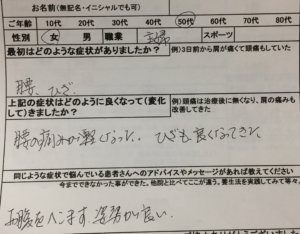 お名前(無記名・イニシャルでも可)
ご年齢 10代 20代 30代 40代 50代 60代
性別 女 男 職業 主婦 スポーツ
最初はどのような症状がありましたか? 例)3日前から肩が痛くて頭痛もしていた
腰、ひざ
上記の症状はどのように良くなって(変化して)きましたか? 例)頭痛は治療後に無くなり、肩の痛みも改善してきた
腰の痛みが軽くなった。ひざも良くなってきた
同じような症状で悩んでいる患者さんへのアドバイスやメッセージがあれば教えてください
今までできなかった事ができた。他院と比べてここが違う。養生法を実践してみて等々。
お腹をへこます姿勢が良い。